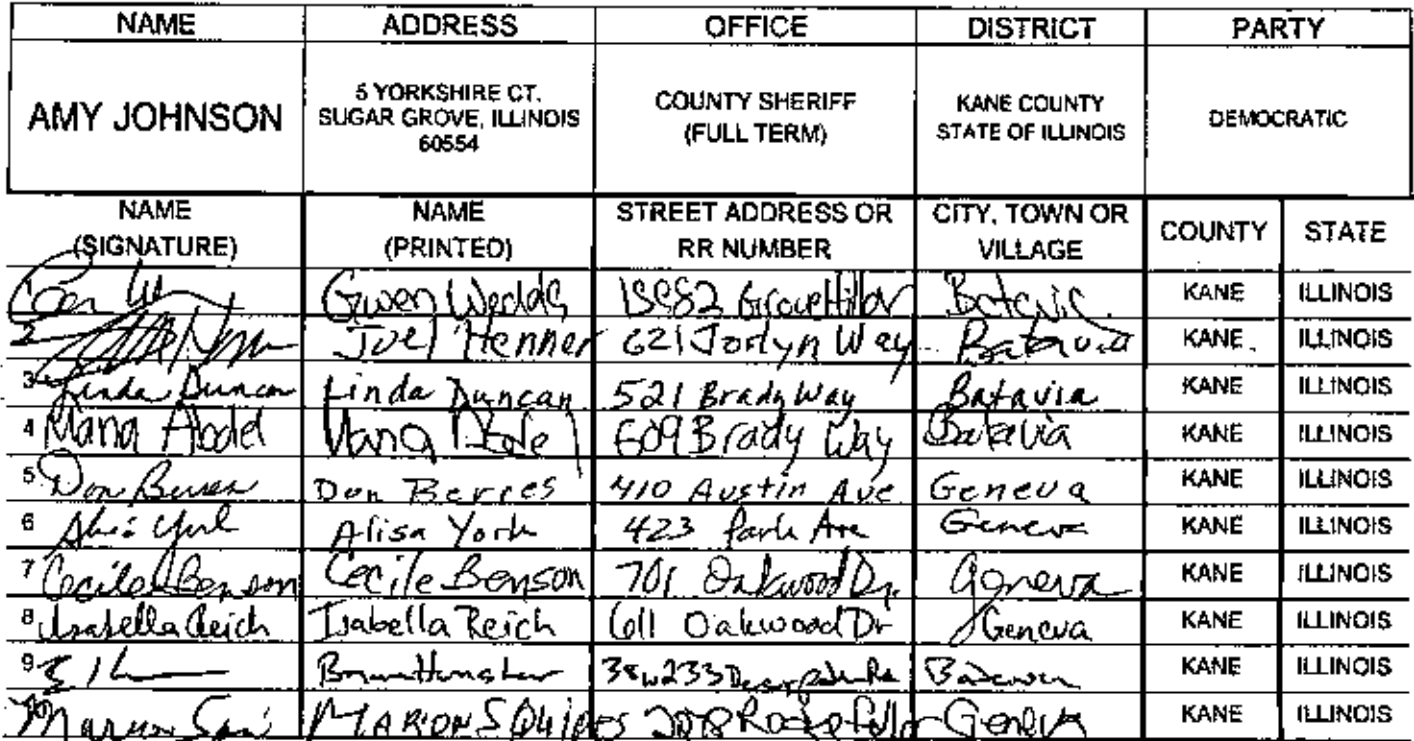 NAME ADDRESS OFFICE DISTRICT PARTY
AMY JOHNSON 5 YORKSHIRE CT. SUGAR GROVE, ILLINOIS 60554 COUNTY SHERIFF (FULL TERM) KANE COUNTY STATE OF ILLINOIS DEMOCRATIC
NAME (SIGNATURE) NAME (PRINTED) STREET ADDRESS OR RR NUMBER CITY, TOWN OR VILLAGE COUNTY STATE
Gwen Batavia KANE ILLINOIS
2 Joel Henner 621 Jorlyn Way Batavia KANE ILLINOIS
3 Linda Duncan Linda Duncan 521 Brady Way Batavia KANE ILLINOIS
4 609 Brady Way Batavia KANE ILLINOIS
5 Don Berres Don Berres 410 Austin Ave Geneva KANE ILLINOIS
6 Alisa York 423 Park Ave Geneva KANE ILLINOIS
7 Cecile Benson Cecile Benson 701 Oakwood Dr. Geneva KANE ILLINOIS
8 Isabella Reich Isabella Reich 611 Oakwood Dr Geneva KANE ILLINOIS
9 38w233 KANE ILLINOIS
10 MARION Geneva KANE ILLINOIS